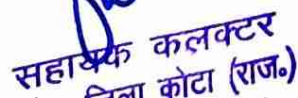 सहायक कलक्टर
जिला कोटा (राज०)